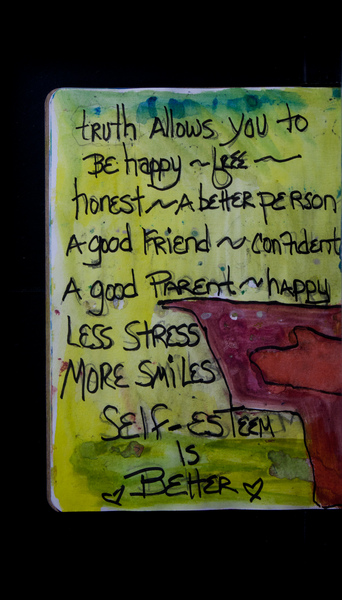 truth Allows you to
Be happy ~ free ~
honest ~ A better person
A good Friend ~ confident
A good Parent. ~ happy
LESS STRESS
MORE SMiLES
SELF-ESTEEM
IS
BETTER